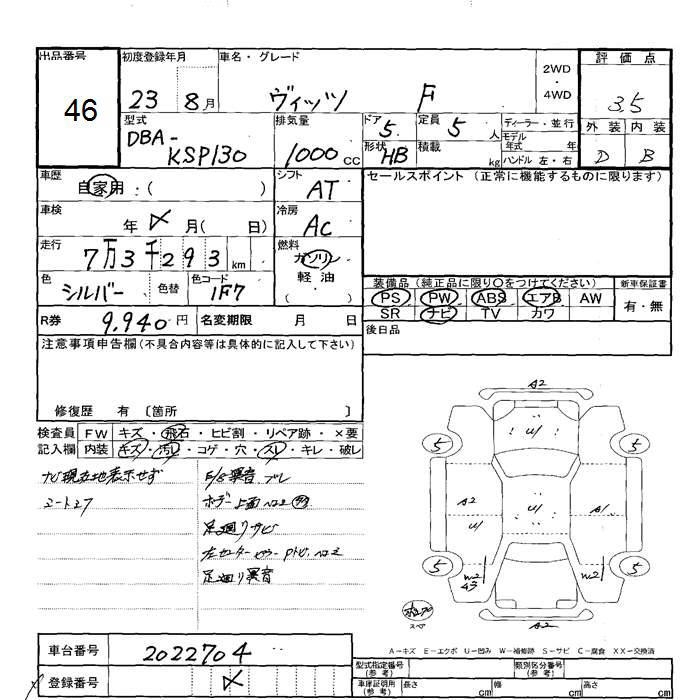 出品番号 初度登録年月 車名・グレード 2WD・4WD 評価点
46 23 8月 ヴィッツ F 3.5
型式 排気量 ドア 5 定員 5 人 ディーラー・並行 外装 内装
DBA-KSP130 1000cc 形状 HB 積載 kg モデル年式 年 ハンドル 左・右 D B
車歴 自家用:( ) シフト AT セールスポイント(正常に機能するものに限ります)
車検 年 月( 日) 冷房 AC
走行 7万3千293km 燃料 ガソリン
色 シルバー 色替 色コード 1F7 軽油 ( )
装備品(純正品に限り○をつけてください) 新車保証書
PS PW ABS エアB AW 有・無
SR ナビ TV カワ
R券 9,940円 名変期限 月 日 後日品
注意事項申告欄(不具合内容等は具体的に記入して下さい)
修復歴 有 〔箇所 〕
検査員 FW キズ・飛石・ヒビ割・リペア跡・×要
記入欄 内装 キズ・汚レ・コゲ・穴・スレ・キレ・破レ
ナビ現在地表示せず
シートスレ
足廻りサビ
足廻り異音
A2
U1
5 5
A2 U1 U1 A1
5 5
W2 W2
A2
スペア
A-キズ E-エクボ U-凹み W-補修跡 S-サビ C-腐食 XX-交換済
車台番号 2022704
登録番号
型式指定番号(参考) 類別区分番号(参考)
車庫証明用(参考) 長さ cm 幅 cm 高さ cm